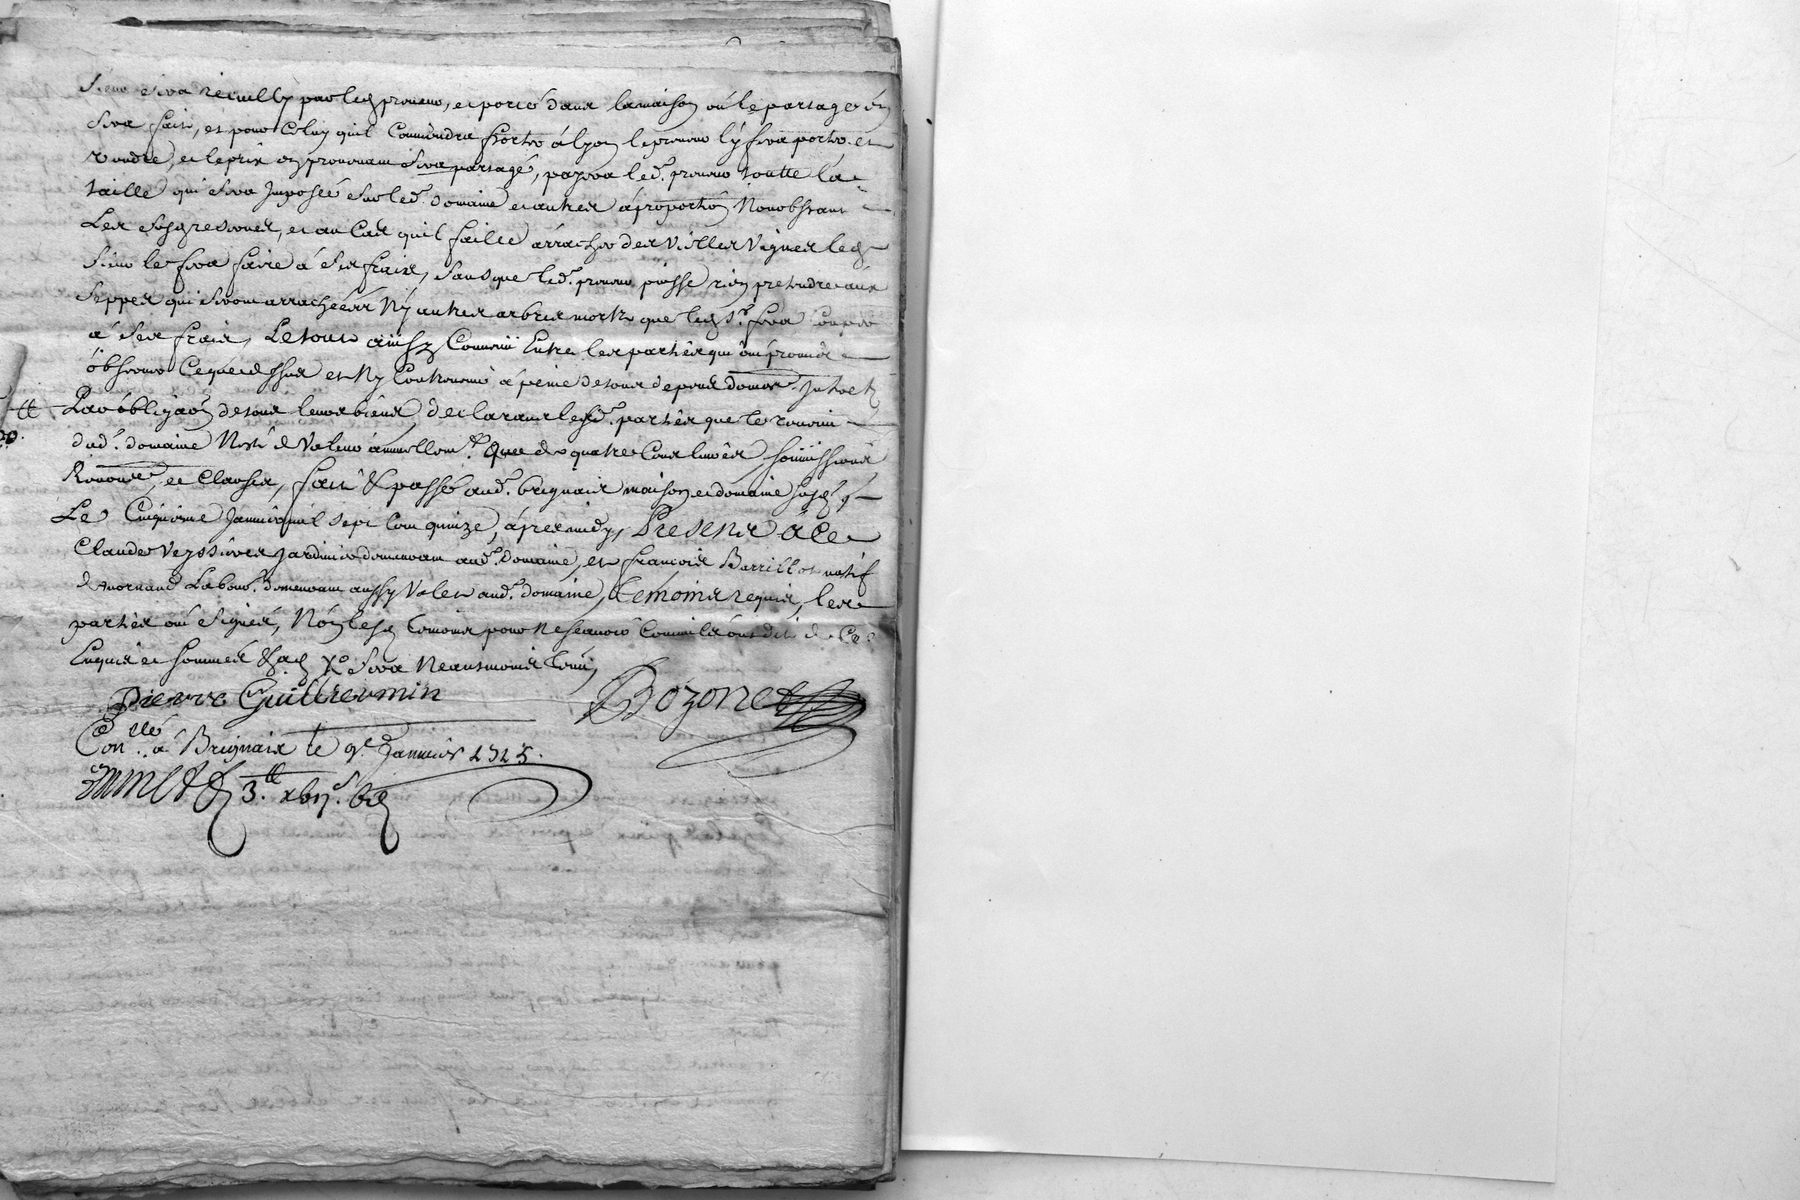 Sieur sera recuelly par led preneur, et porté dans la maison ou le partage en
sera fait, et pour celuy quil conviendra porter à lyon le preneur ly fera porter et
vendre, et le prix en provenant sera partagé, payera led. preneur toutte la
taille qui sera imposée sur led. domaine et autres à proportion Nonobstant
Les, et au Cas quil faille arracher des vielles vignes led
Sieur le fera faire à ses fraix, sans que led. preneur puisse rien pretendre aux
Seppes qui seront arrachées Ny autres arbres morts que led Sr. fera couper
a Ses fraix, Le tout ainsy Convenu Entre les parties qui ont promis
observer Ce que dessus et Ny Contrevenir à peine de tous depens domes. Jnterets
Par obligaon de tous leurs biens, declarant lesd. parties que le revenu
dud. domaine N'est de valeur annuellemt. Que de quatre Cens livres soumissions
Renonces. et Clauses, fait & passé aud. brignais maison et domaine susd.
Le Cinquieme Janvier mil sept cens quinze, apres midy, Presens à ce
Claude Veyssieres Jardinier demeurant aud. domaine, et francois Barrillot natif
de mornand Labour. demeurant aussy Valet aud. domaine, temoins requis, les
parties ont signés, Non lesd temoins pour ne scavoir Comm'ils ont dit de Ce
Enquis et sommés sera Neantmoins Con
Pierre Guillermin Bozonet
Con.llé à Brignais le 9.e Janvier 1715.
3.tt